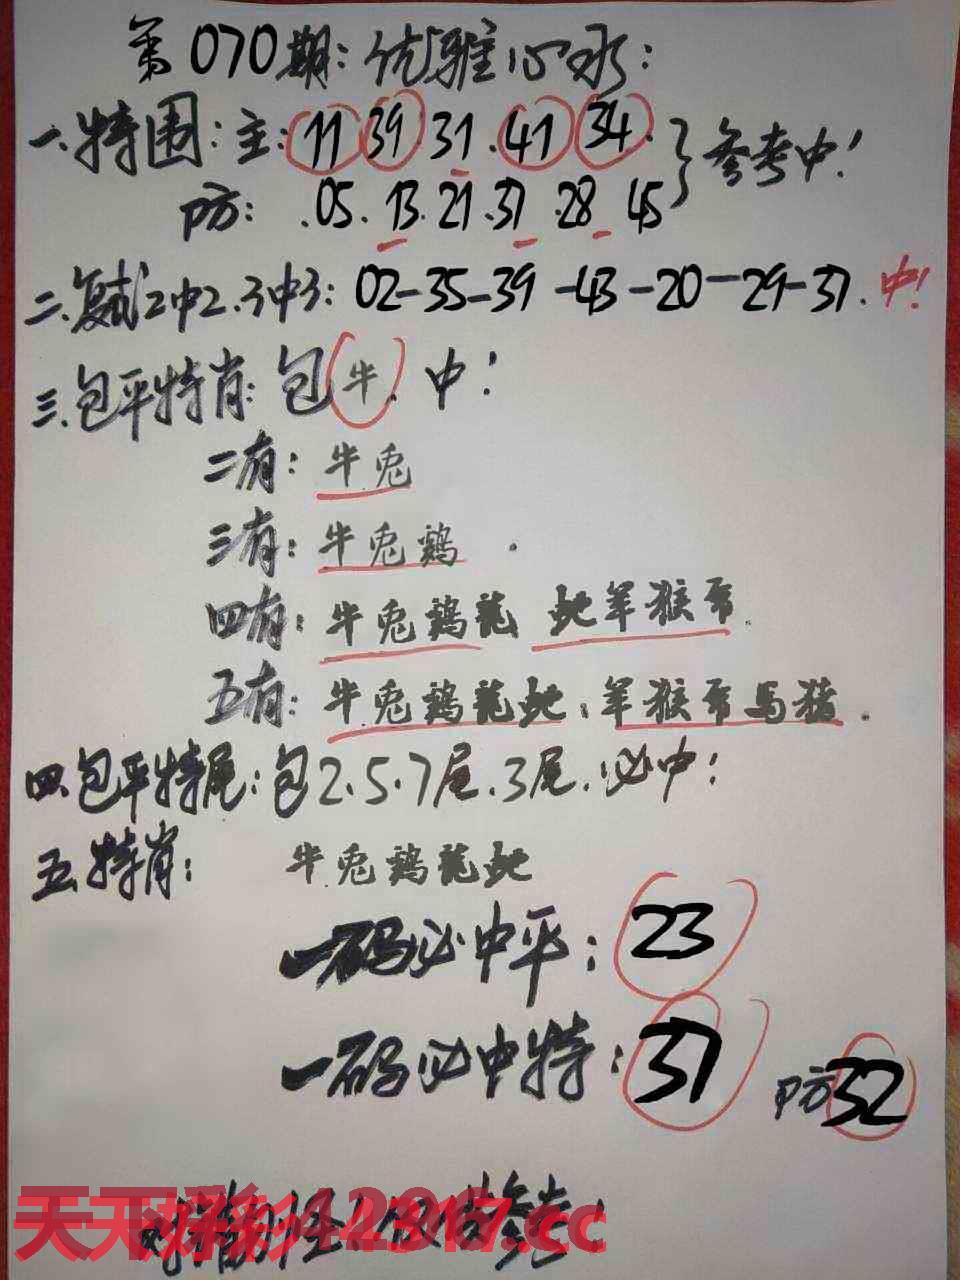 第070期:优雅心水:
一.特围:主:11 39 31.41 34.
参考中!
防:.05.13.21.37.28 45
二.复试2中2.3中3:02-35-39-43-20-29-37.中!
三.包平特肖:包牛.中!
二有:牛兔
三有:牛兔鷄.
四有:牛兔鷄龍 蛇羊猴
五有:牛兔鷄龍蛇:羊猴 馬猪.
四.包平特尾:包2.5.7尾.3尾.必中!
五.特肖:牛兔鷄龍蛇
一码必中平:23
一码必中特:37 防32
天下彩 12317.cc
参考!